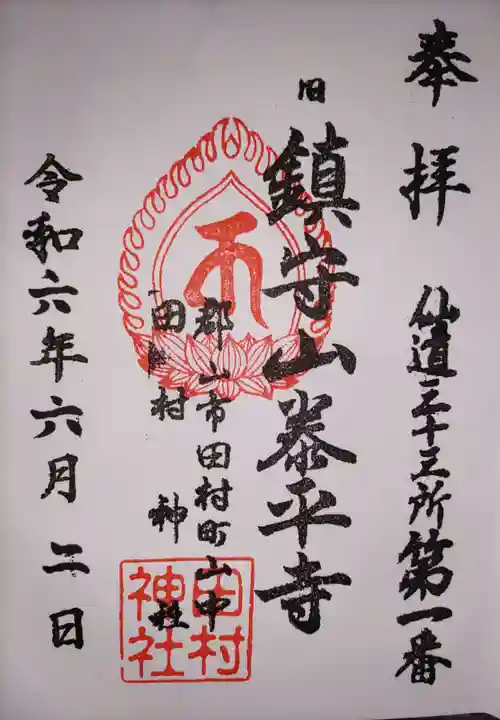 奉拝
仙道三十三所第一番
旧
鎮守山泰平寺
郡山市田村町山中
田村神社
令和六年六月二日
田村
神社